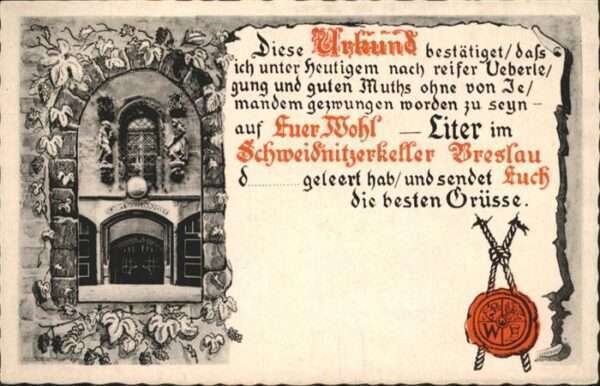 Diese Urkund bestätiget/daß
ich unter Heutigem nach reifer Ueberle/
gung und guten Muths ohne von Je/
mandem gezwungen worden zu seyn –
auf Euer Wohl — Liter im
Schweidnitzerkeller Breslau
d............ geleert hab/und sendet Euch
die besten Grüsse.
W E